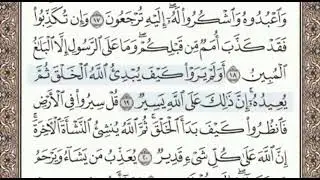 وَٱعْبُدُوهُ وَٱشْكُرُوا۟ لَهُۥٓ ۖ إِلَيْهِ تُرْجَعُونَ ١٧ وَإِن تُكَذِّبُوا۟
فَقَدْ كَذَّبَ أُمَمٌ مِّن قَبْلِكُمْ ۖ وَمَا عَلَى ٱلرَّسُولِ إِلَّا ٱلْبَلَٰغُ
ٱلْمُبِينُ ١٨ أَوَلَمْ يَرَوْا۟ كَيْفَ يُبْدِئُ ٱللَّهُ ٱلْخَلْقَ ثُمَّ
يُعِيدُهُۥٓ ۚ إِنَّ ذَٰلِكَ عَلَى ٱللَّهِ يَسِيرٌ ١٩ قُلْ سِيرُوا۟ فِى ٱلْأَرْضِ
فَٱنظُرُوا۟ كَيْفَ بَدَأَ ٱلْخَلْقَ ۚ ثُمَّ ٱللَّهُ يُنشِئُ ٱلنَّشْأَةَ ٱلْءَاخِرَةَ ۚ
إِنَّ ٱللَّهَ عَلَىٰ كُلِّ شَىْءٍ قَدِيرٌ ٢٠ يُعَذِّبُ مَن يَشَآءُ وَيَرْحَمُ